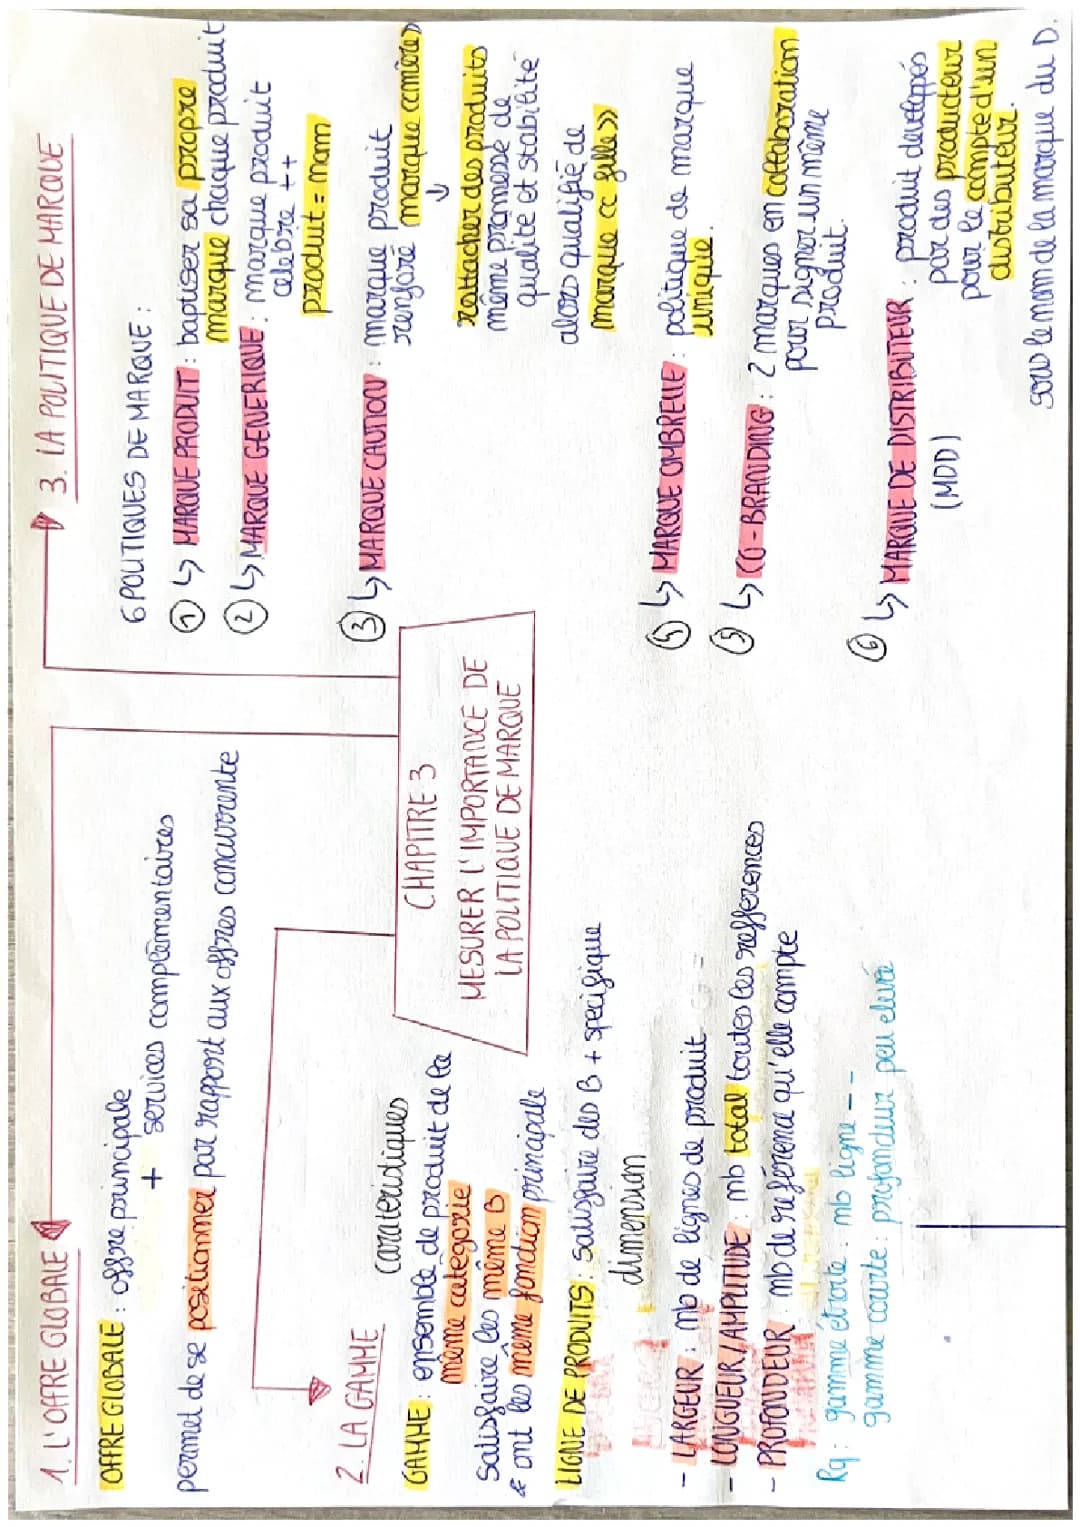 1. L'OFFRE GLOBALE
OFFRE GLOBALE : offre principale
+ services complémentaires
permet de se positionner par rapport aux offres concurrente
2. LA GAMME
caratéridiques
GAMME : ensemble de produit de la
même catégorie
Satisfaire les même B
& ont les même fonction principale
LIGNE DE PRODUITS : satisfaire des B + spécifique
dimension
- LARGEUR : nb de lignes de produit
- LONGUEUR/AMPLITUDE : nb total toutes les refferences
- PROFONDEUR : nb de référence qu'elle compte
Rq : gamme étroite : nb ligne --
gamme courte : profondeur peu elevé
CHAPITRE 3
MESURER L'IMPORTANCE DE
LA POLITIQUE DE MARQUE
3. LA POLITIQUE DE MARQUE
6 POLITIQUES DE MARQUE :
① ↳ MARQUE PRODUIT : baptiser sa propre
marque chaque produit
② ↳ MARQUE GENERIQUE : marque produit
celebre ++
produit = nom
③ ↳ MARQUE CAUTION : marque produit
renforé marque <<mère>>
↓
rattacher des produits
même promesse de
qualite et stabilité
alors qualifié de
marque << fille >>
↳ MARQUE OMBRELLE : politique de marque
unique.
⑤ ↳ CO-BRANDING : 2 marques en collaboration
pour signer un même
produit.
⑥ ↳ MARQUE DE DISTRIBUTEUR : produit developpés
(MDD)
par des producteur
pour le compte d'un
distributeur.
sous le nom de la marque du D.